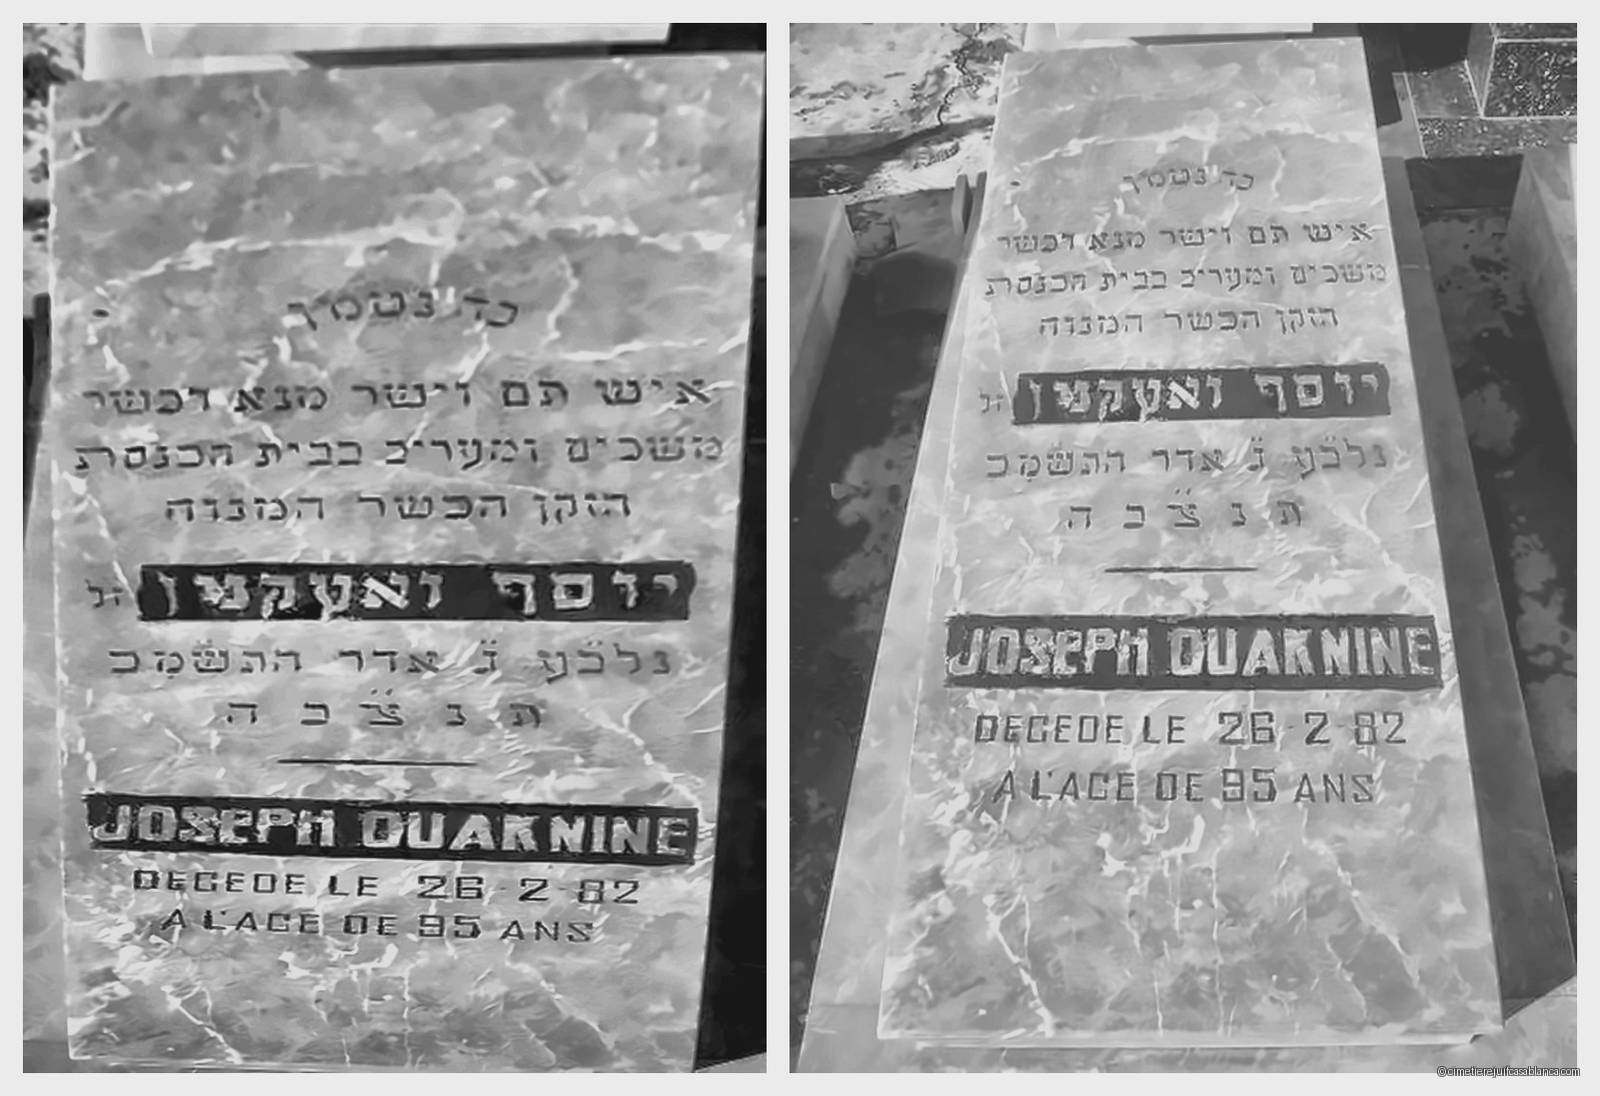 פה נטמן
איש תם וישר מנא דכשר
משכים ומעריב בבית הכנסת
הזקן הכשר המנוח
יוסף ואעקנין ז״ל
נלב״ע ג׳ אדר התשמ״ב
ת נ צ״ ב ה
JOSEPH OUAKNINE
DECEDE LE 26-2-82
A L'AGE DE 95 ANS
פה נטמן
איש תם וישר מנא דכשר
משכים ומעריב בבית הכנסת
הזקן הכשר המנוח
יוסף ואעקנין ז״ל
נלב״ע ג׳ אדר התשמ״ב
ת נ צ״ ב ה
JOSEPH OUAKNINE
DECEDE LE 26-2-82
A L'AGE DE 95 ANS
©cimetierejuifcasablanca.com